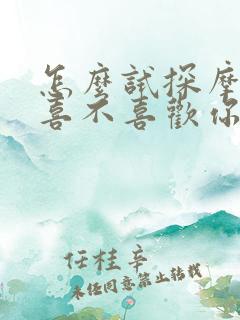 怎麼試探摩
喜不喜歡你
任桂辛
未經同意禁止轉載